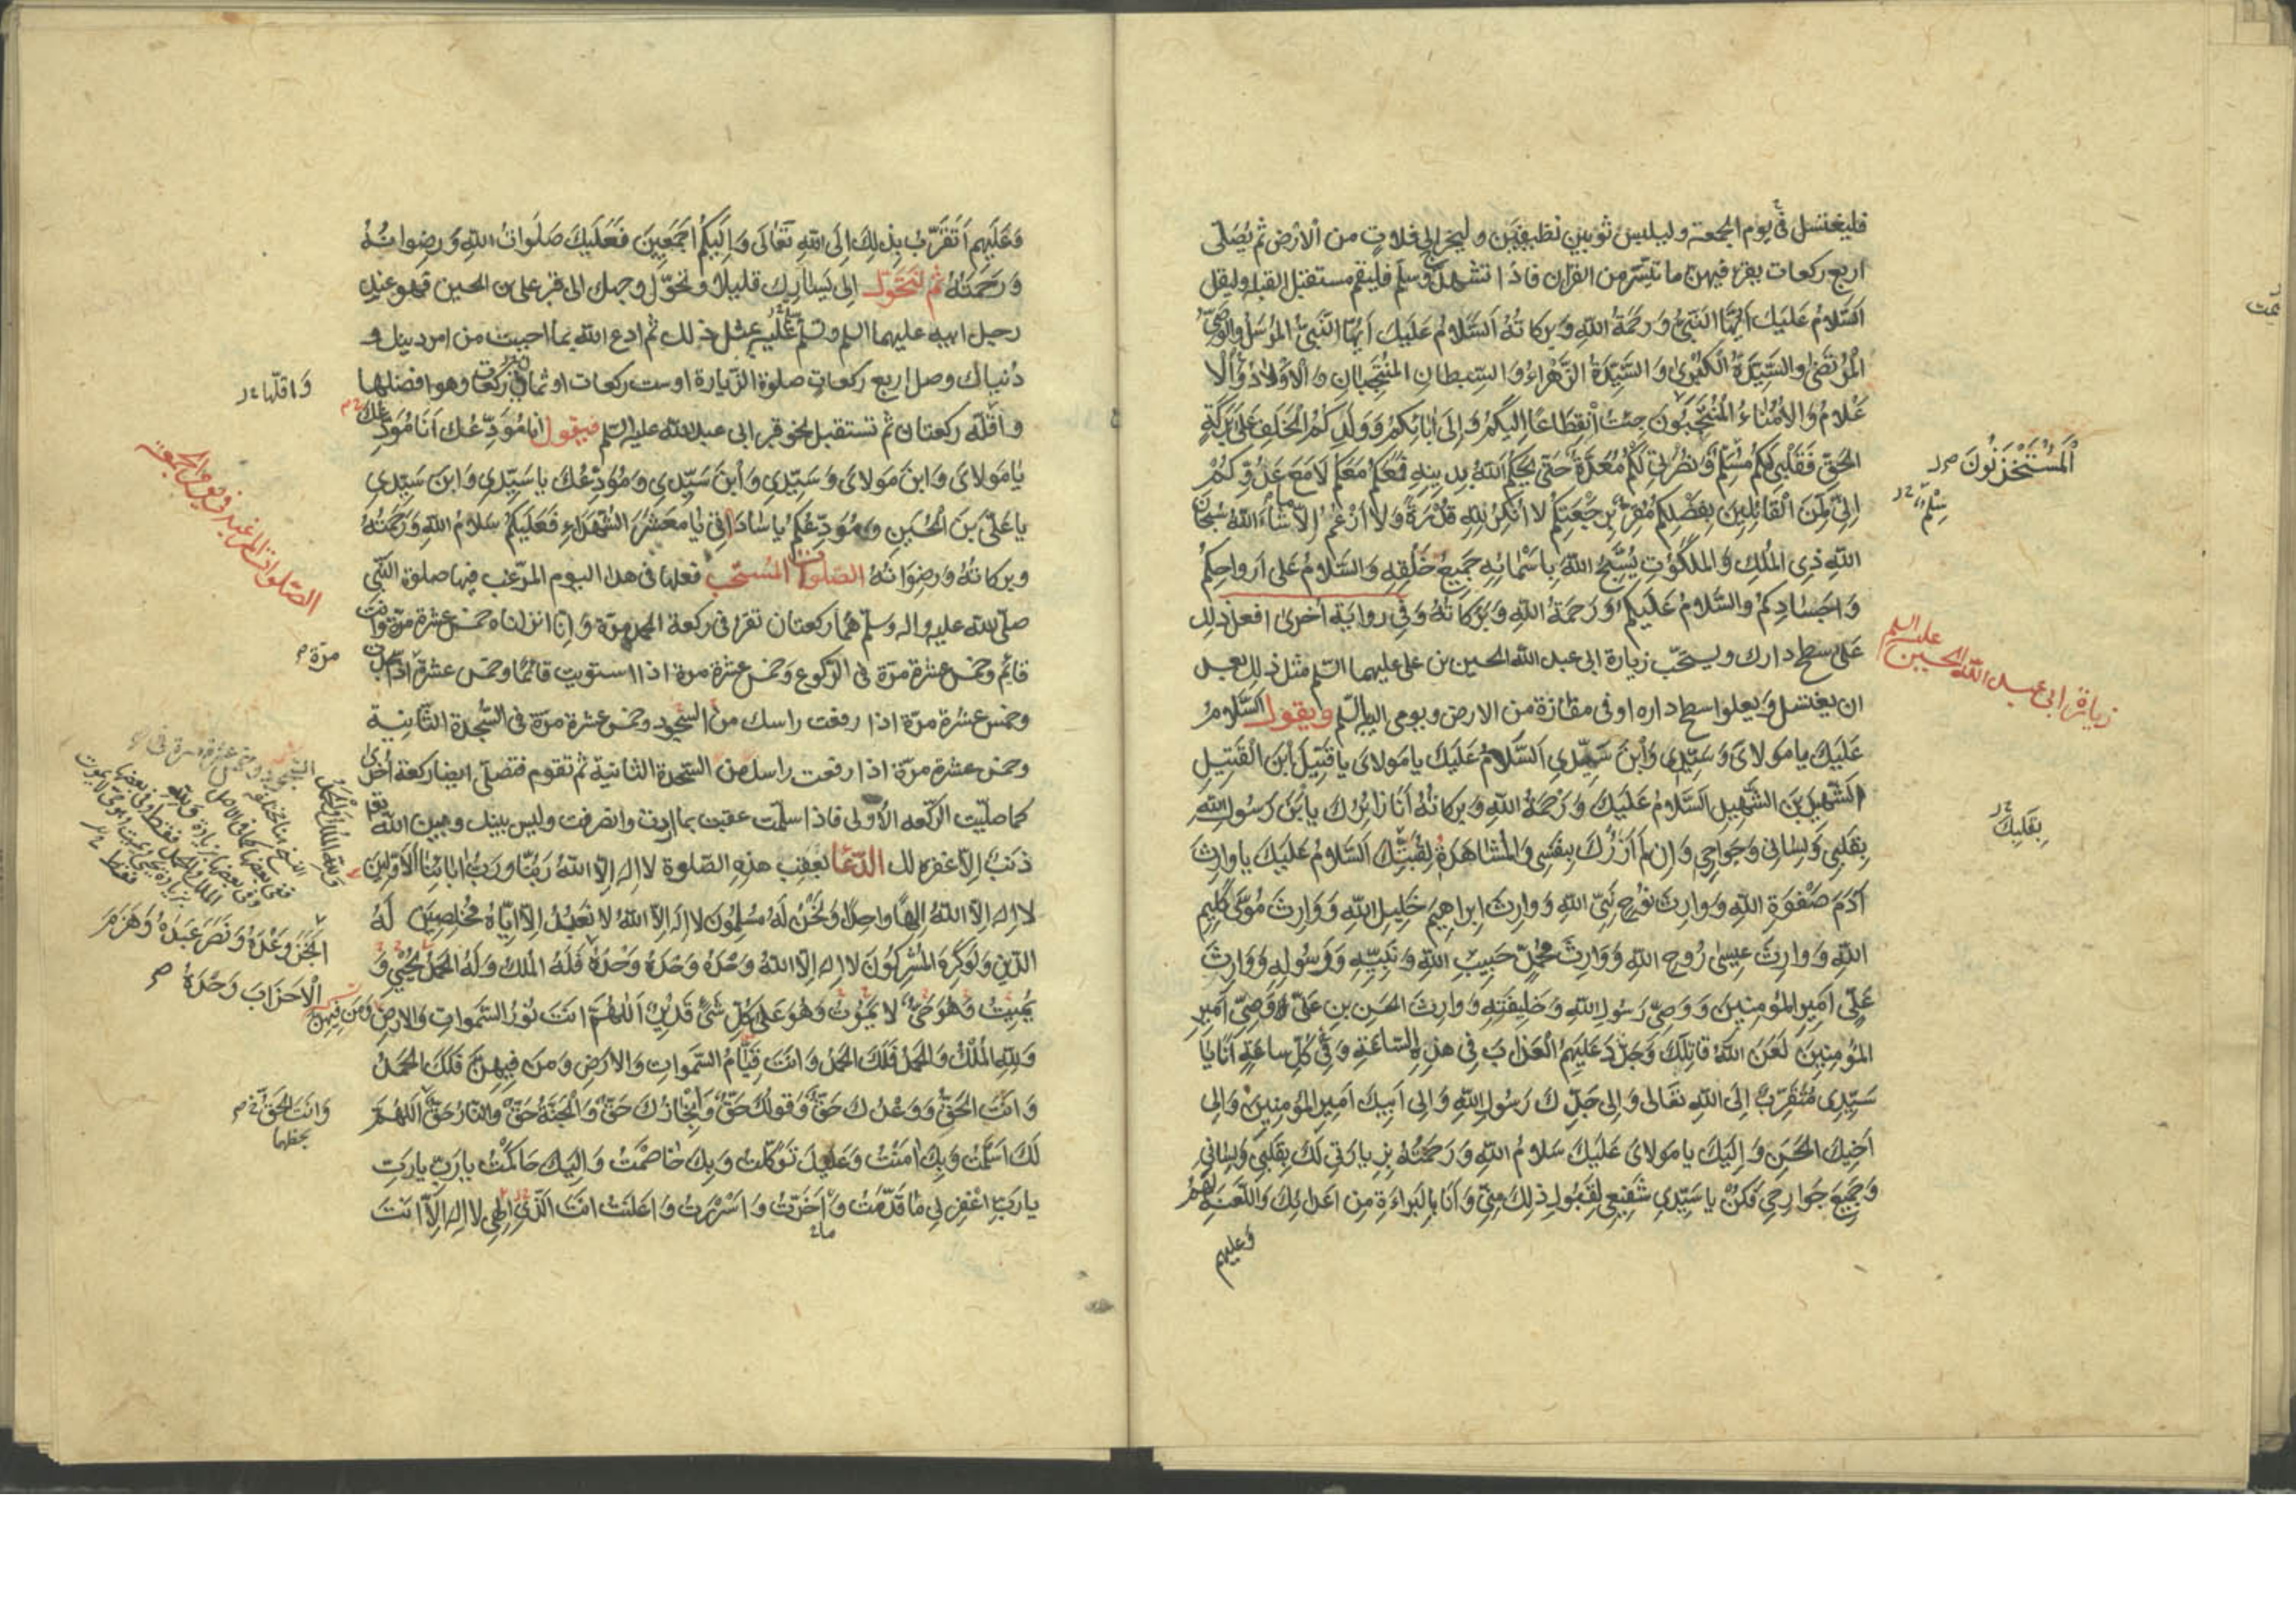 فليغتسل في يوم الجمعة وليلبس ثوبين نظيفين وليخرج الى فلاة من الارض ثم يُصَلّى
اربع ركعات يقرء فيهن ما تيسّر من القران فاذا تشهد وسلم فليقم مستقبل القبلة وليقل
اَلسَّلامُ عَلَيكَ اَيُّهَا النَّبِيُّ وَرَحمَةُ اللهِ وَبَرَكاتُهُ اَلسَّلامُ عَلَيكَ اَيُّهَا النَّبِيُّ المُرسَلُ وَالوَصِيُّ
المُرتَضى وَالسَّيِّدَةُ الكُبرى وَالسَّيِّدَةُ الزَّهراءُ وَالسِّبطانِ المُنتَجَبانِ وَالاَولادُ وَالا
عَلامُ وَالاُمَناءُ المُنتَجَبُونَ جِئتُ انقِطاعًا اِلَيكُم وَاِلى ابائِكُم وَوَلَدِكُمُ الخَلَفِ عَلى بَرَكَةِ
الحَقِّ فَقَلبي لَكُم مُسَلِّمٌ وَنُصرَتي لَكُم مُعَدَّةٌ حَتّى يَحكُمَ اللهُ بِدينِهِ فَمَعَكُم مَعَكُم لا مَعَ عَدُوِّكُم
اِنّي لَمِنَ القائِلينَ بِفَضلِكُم مُقِرٌّ بِرَجعَتِكُم لا اُنكِرُ لِلّهِ قُدرَةً وَلا اَزعُمُ اِلّا ما شاءَ اللهُ سُبحانَ
اللهِ ذِى المُلكِ وَالمَلَكُوتِ يُسَبِّحُ اللهَ بِاَسمائِهِ جَميعُ خَلقِهِ وَالسَّلامُ عَلى اَرواحِكُم
وَاَجسادِكُم وَالسَّلامُ عَلَيكُم وَرَحمَةُ اللهِ وَبَرَكاتُهُ وَفى رواية اخرى افعل ذلك
على سطح دارك ويستحبّ زيارة ابى عبد الله الحسين بن على عليهما السّلم مثل ذلك بعد
ان يغتسل ويعلوا سطح داره او فى مفازة من الارض ويومى اليه بالسّلم ويقول اَلسَّلامُ
عَلَيكَ يا مَولاىَ وَسَيِّدي وَابنَ سَيِّدي اَلسَّلامُ عَلَيكَ يا مَولاىَ يا قَتيلَ ابنَ القَتيلِ
الشَّهيدَ بنَ الشَّهيدِ اَلسَّلامُ عَلَيكَ وَرَحمَةُ اللهِ وَبَرَكاتُهُ اَنَا زائِرُكَ يا بنَ رَسُولِ اللهِ
بِقَلبي وَلِساني وَجَوارِحي وَاِن لَم اَزُركَ بِنَفسي وَالمُشاهَدَةِ لِقُبَّتِكَ اَلسَّلامُ عَلَيكَ يا وارِثَ
ادَمَ صَفوَةِ اللهِ وَوارِثَ نُوحٍ نَبِيِّ اللهِ وَوارِثَ اِبراهيمَ خَليلِ اللهِ وَوارِثَ مُوسى كَليمِ
اللهِ وَوارِثَ عيسى رُوحِ اللهِ وَوارِثَ مُحَمَّدٍ حَبيبِ اللهِ وَنَبِيِّهِ وَرَسُولِهِ وَوارِثَ
عَلِيٍّ اَميرِ المُؤمِنينَ وَوَصِيِّ رَسُولِ اللهِ وَخَليفَتِهِ وَوارِثَ الحَسَنِ بنِ عَلِيٍّ وَصِيِّ اَميرِ
المُؤمِنينَ لَعَنَ اللهُ قاتِلَكَ وَجَدَّدَ عَلَيهِمُ العَذابَ فى هذِهِ السّاعَةِ وَفى كُلِّ ساعَةٍ اَنَا يا
سَيِّدى مُتَقَرِّبٌ اِلَى اللهِ تَعالى وَاِلى جَدِّكَ رَسُولِ اللهِ وَاِلى اَبيكَ اَميرِ المُؤمِنينَ وَاِلى
اَخيكَ الحَسَنِ وَاِلَيكَ يا مَولاىَ عَلَيكَ سَلامُ اللهِ وَرَحمَتُهُ بِزِيارَتى لَكَ بِقَلبى وَلِسانى
وَجَميعِ جَوارِحى فَكُن يا سَيِّدى شَفيعى لِقَبُولِ ذلِكَ مِنّى وَاَنَا بِالبَراءَةِ مِن اَعدائِكَ وَاللَّعنَةِ لَهُم
وعليهم
اَلمُستَخزَنُونَ
سِلمٌ
زيارة ابى عبد الله الحسين عليه السلم
بِقَلبِكَ
وَعَلَيهِم اَتَقَرَّبُ بِذلِكَ اِلَى اللهِ تَعالى وَاِلَيكُم اَجمَعينَ فَعَلَيكَ صَلَواتُ اللهِ وَرِضوانُهُ
وَرَحمَتُهُ ثم تتحوّل اِلى يَسارِك قليلا وتحوّل وجهك الى قبر على بن الحسين فهو عند
رجل ابيه عليهما السلم وتسلّم عليه بمثل ذلك ثم ادع الله بما احببت من امر دينك و
دنياك وصل اربع ركعات صلوة الزيارة او ست ركعات او ثمانى ركعات وهو افضلها
واقلّه ركعتان ثم تستقبل نحو قبر ابى عبد الله عليه السّلم فيقول انا مُوَدِّعُكَ اَنَا مُوَدِّعُكَ
يا مَولاىَ وَابنَ مَولاىَ وَسَيِّدي وَابنَ سَيِّدي وَمُوَدِّعُكَ يا سَيِّدي وَابنَ سَيِّدي
يا عَلِىَّ بنَ الحُسَينِ وَمُوَدِّعُكُم يا ساداتى يا مَعشَرَ الشُّهَداءِ فَعَلَيكُم سَلامُ اللهِ وَرَحمَتُهُ
وَبَرَكاتُهُ وَرِضوانُهُ الصّلوات المستحبّ فعلها فى هذا اليوم المرغّب فيها صلوة النّبى
صلّى الله عليه واله وسلّم هُما ركعتان تقرا فى ركعة الحمد مرّة وَاِنّا انزلناه خمس عشرة مرّة وانت
قائم وخمس عشرة مرّة فى الرّكوع وخمس عشرة مرة اذا استويت قائمًا وخمس عشرة اذا سجدت
وخمس عشرة مرّة اذا رفعت راسك من السّجود وخمس عشرة مرّة فى السّجدة الثّانية
وخمس عشرة مرّة اذا رفعت راسك من السّجدة الثانية ثم تقوم فتصلّى ايضا ركعة اُخرى
كما صلّيت الركعة الاُولى فاذا سلمت عقبت بما اردت وانصرفت وليس بينك وبين الله تعالى
ذنب اِلّا غفره لك الدّعا بعقب هذه الصّلوة لا اِلهَ اِلّا اللهُ رَبُّنا وَرَبُّ ابائِنَا الاَوَّلينَ
لا اِلهَ اِلّا اللهُ اِلهًا واحِدًا وَنَحنُ لَهُ مُسلِمُونَ لا اِلهَ اِلّا اللهُ لا نَعبُدُ اِلّا اِيّاهُ مُخلِصينَ لَهُ
الدّينَ وَلَو كَرِهَ المُشرِكُونَ لا اِلهَ اِلّا اللهُ وَحدَهُ وَحدَهُ وَحدَهُ فَلَهُ المُلكُ وَلَهُ الحَمدُ يُحيي وَ
يُميتُ وَهُوَ حَيٌّ لا يَمُوتُ وَهُوَ عَلى كُلِّ شَىءٍ قَديرٌ اَللّهُمَّ اَنتَ نُورُ السَّمواتِ وَالارضِ وَمَن فيهِنَّ
وَلِلّهِ المُلكُ وَالحَمدُ فَلَكَ الحَمدُ وَاَنتَ قَيّامُ السَّمواتِ وَالارضِ وَمَن فيهِنَّ فَلَكَ الحَمدُ
وَاَنتَ الحَقُّ وَوَعدُكَ حَقٌّ وَقَولُكَ حَقٌّ وَاِنجازُكَ حَقٌّ وَالجَنَّةُ حَقٌّ وَالنّارُ حَقٌّ اَللّهُمَّ
لَكَ اَسلَمتُ وَبِكَ امَنتُ وَعَلَيكَ تَوَكَّلتُ وَبِكَ خاصَمتُ وَاِلَيكَ حاكَمتُ يا رَبِّ يا رَبِّ
يا رَبِّ اغفِر لي ما قَدَّمتُ وَاَخَّرتُ وَاَسرَرتُ وَاَعلَنتُ اَنتَ اِلهي لا اِلهَ اِلّا اَنتَ
وَاقلّها
الصّلوات المرغب فيها فى يوم الجمعة
مرّة
اَنجَزَ وَعدَهُ وَنَصَرَ عَبدَهُ وَهَزَمَ
الاَحزابَ وَحدَهُ
وَاَنتَ الحَقُّ